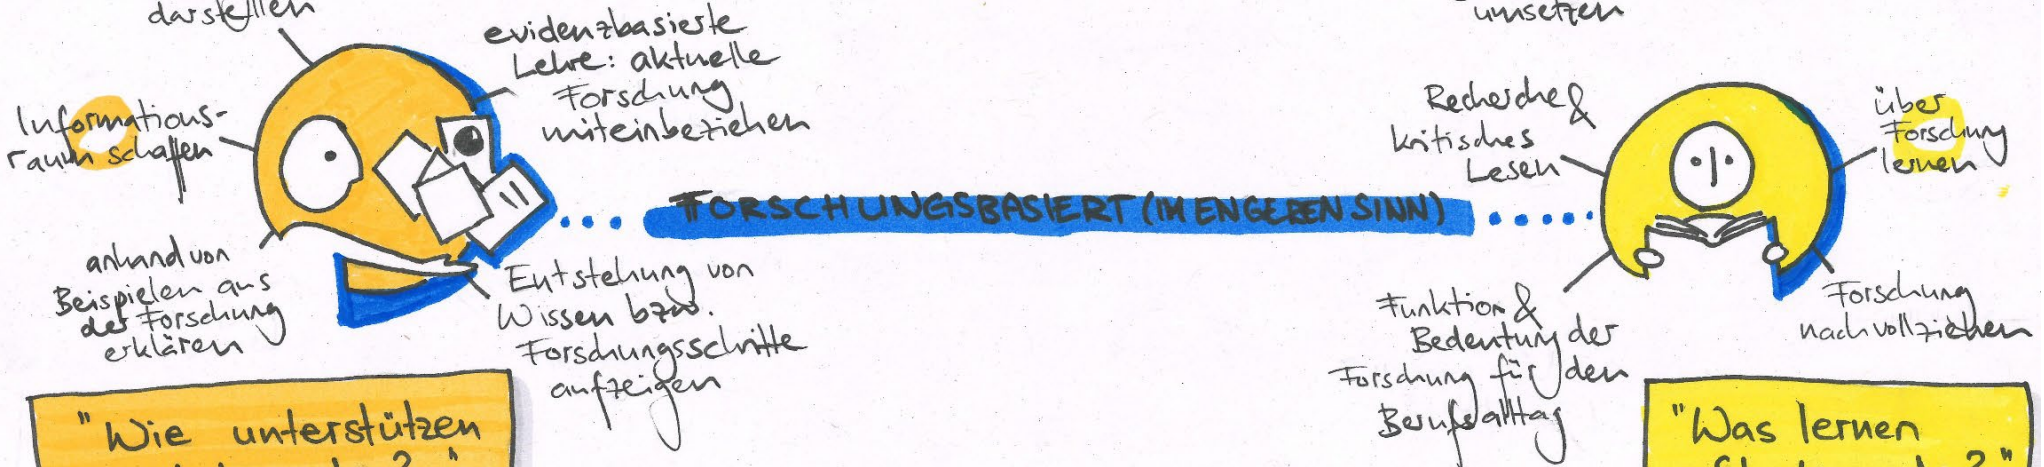 darstellen
evidenzbasierte
Lehre: aktuelle
Forschung
miteinbeziehen
Informations-
raum schaffen
anhand von
Beispielen aus
der Forschung
erklären
Entstehung von
Wissen bzw.
Forschungsschritte
aufzeigen
"Wie unterstützen
FORSCHUNGSBASIERT (IM ENGEREN SINN)
umsetzen
Recherche &
kritisches
Lesen
über
Forschung
lernen
Funktion &
Bedeutung der
Forschung für den
Berufsalltag
Forschung
nachvollziehen
"Was lernen